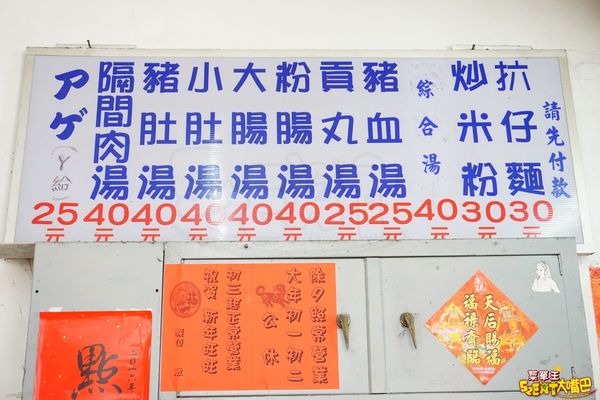 請先付款
抗仔麵 30元
炒米粉 30元
綜合湯 40元
豬血湯 25元
貢丸湯 25元
粉腸湯 40元
大腸湯 40元
小肚湯 40元
豬肚湯 40元
隔間肉湯 40元
アゲ(ㄚ給) 25元
除夕照常營業
大年初一初二
公休
初三起正常營業
祝賀 新年旺旺
天后賜福
福祿齊臨
點
大嘴巴